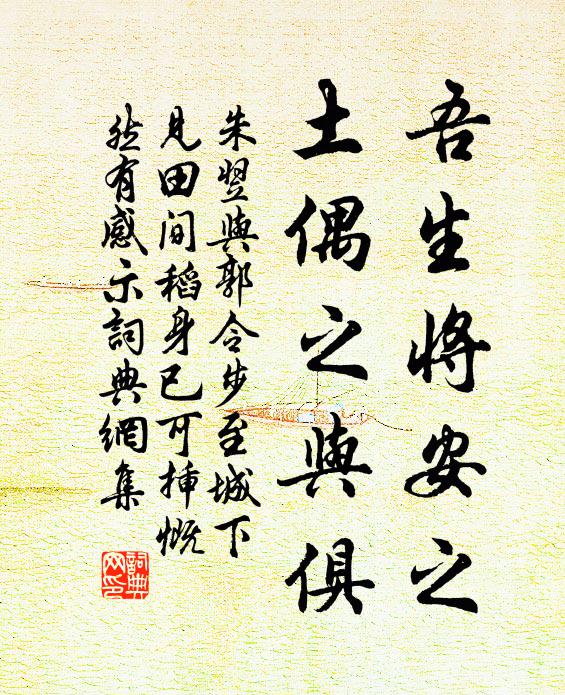 吾生將安之
土偶之與俱
朱翌與郭令步至城下
見田間稻身已可揷慨
然有感示詞典網集
詞典
网印